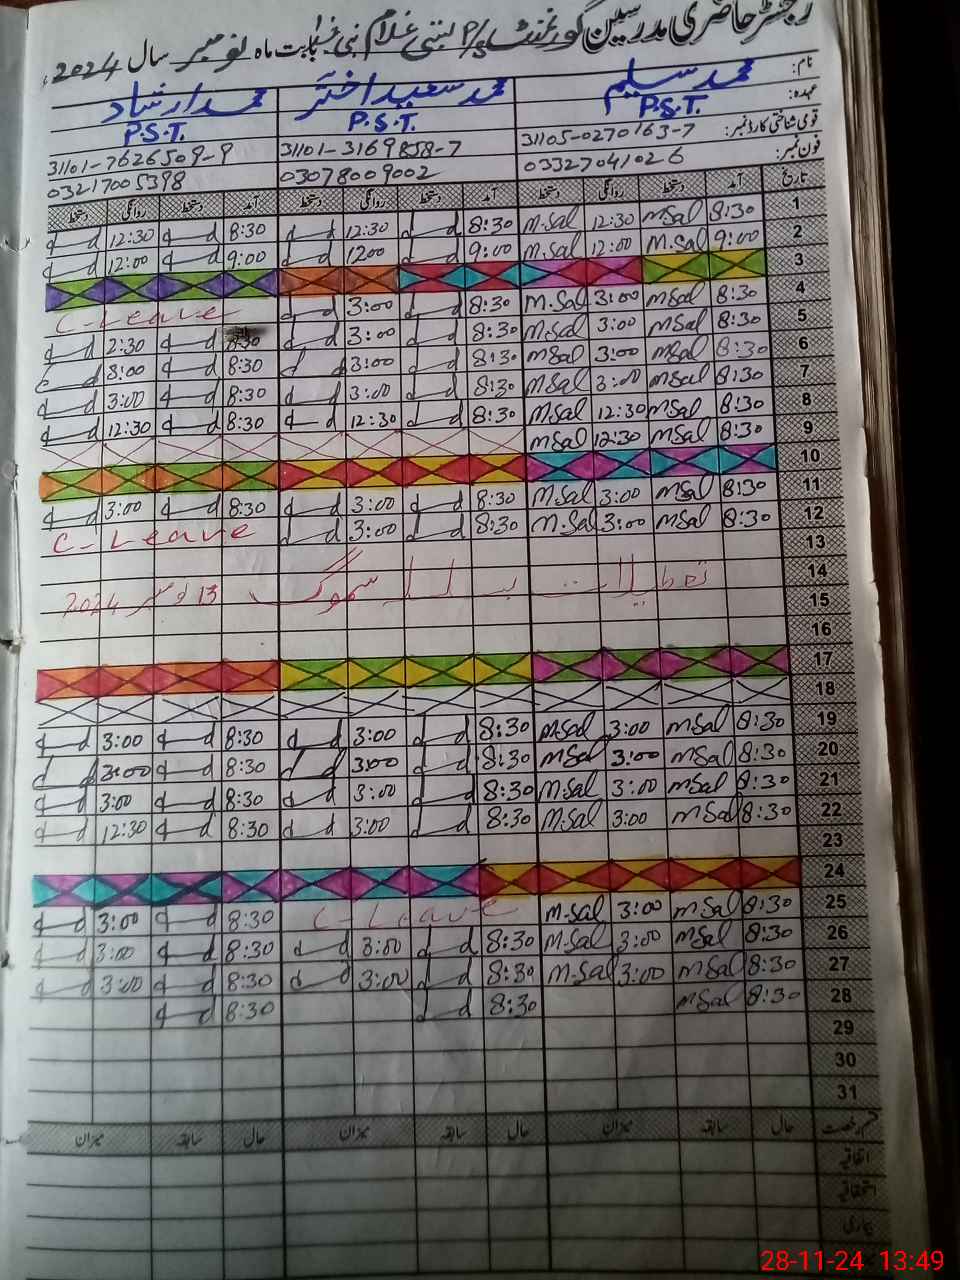 رجسٹر حاضری مدرسین گورنمنٹ P/S بستی غلام نبی بابت ماہ نومبر سال 2024ء
نام: محمد سلیم محمد سعید اختر محمد ارشاد
عہدہ: P.S.T. P.S.T. P.S.T.
قومی شناختی کارڈ نمبر: 31105-0270163-7 31101-3169858-7 31101-7626509-9
فون نمبر: 03327041026 03078009002 03217005398
تاریخ آمد دستخط روانگی دستخط آمد دستخط روانگی دستخط آمد دستخط روانگی دستخط
1 8:30 M.Sal 12:30 M.Sal 8:30 12:30 8:30 12:30
2 9:00 M.Sal 12:00 M.Sal 9:00 1200 9:00 12:00
3
4 8:30 M.Sal 3:00 M.Sal 8:30 3:00 C-Leave
5 8:30 M.Sal 3:00 M.Sal 8:30 3:00 8:30 2:30
6 8:30 M.Sal 3:00 M.Sal 8:30 3:00 8:30 8:00
7 8:30 M.Sal 3:00 M.Sal 8:30 3:00 8:30 3:00
8 8:30 M.Sal 12:30 M.Sal 8:30 12:30 8:30 12:30
9 8:30 M.Sal 12:30 M.Sal
10
11 8:30 M.Sal 3:00 M.Sal 8:30 3:00 8:30 3:00
12 8:30 M.Sal 3:00 M.Sal 8:30 3:00 C-Leave
13
14 تعطیلات بسلسلہ سموگ
15 13 نومبر 2024
16
17
18
19 8:30 M.Sal 3:00 M.Sal 8:30 3:00 8:30 3:00
20 8:30 M.Sal 3:00 M.Sal 8:30 3:00 8:30 3:00
21 8:30 M.Sal 3:00 M.Sal 8:30 3:00 8:30 3:00
22 8:30 M.Sal 3:00 M.Sal 8:30 3:00 8:30 12:30
23
24
25 8:30 M.Sal 3:00 M.Sal C-Leave 8:30 3:00
26 8:30 M.Sal 3:00 M.Sal 8:30 3:00 8:30 3:00
27 8:30 M.Sal 3:00 M.Sal 8:30 3:00 8:30 3:00
28 8:30 M.Sal 8:30 8:30
29
30
31
قسم رخصت حال سابقہ میزان حال سابقہ میزان حال سابقہ میزان
اتفاقیہ
استحقاقیہ
بیماری
28-11-24 13:49